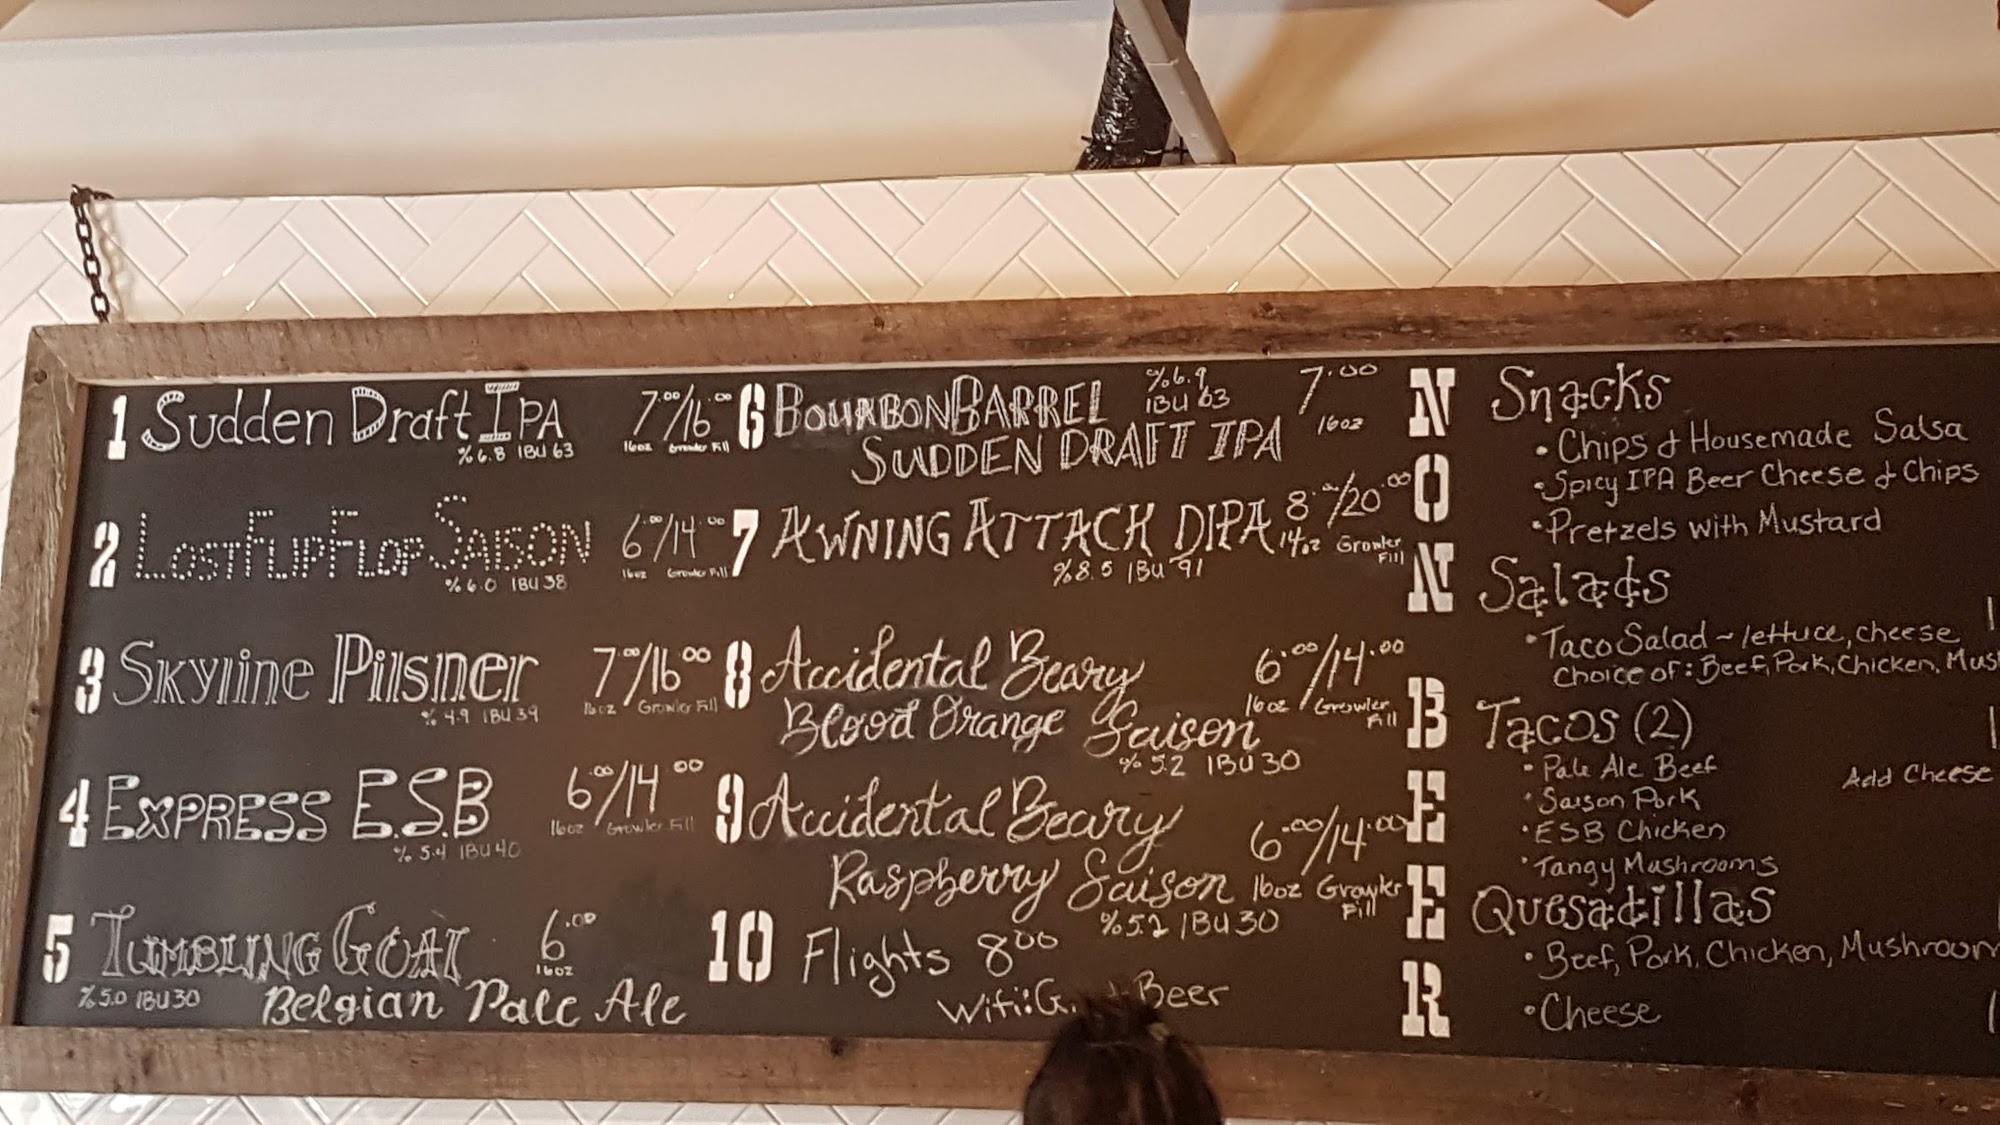 1 Sudden Draft IPA 7.00/16.00
% 6.8 IBU 63 16oz Growler Fill
2 Lost Flip Flop Saison 6.00/14.00
% 6.0 IBU 38 16oz Growler Fill
3 Skyline Pilsner 7.00/16.00
% 4.9 IBU 39 16oz Growler Fill
4 Express E.S.B 6.00/14.00
% 5.4 IBU 40 16oz Growler Fill
5 Tumbling Goat 6.00
16oz
% 5.0 IBU 30 Belgian Pale Ale
6 Bourbon Barrel % 6.9 7.00
IBU 63 16oz
Sudden Draft IPA
7 Awning Attack DIPA 8.00/20.00
% 8.5 IBU 91 14oz Growler Fill
8 Accidental Beary 6.00/14.00
Blood Orange Saison 16oz Growler Fill
% 5.2 IBU 30
9 Accidental Beary 6.00/14.00
Raspberry Saison 16oz Growler Fill
% 5.2 IBU 30
10 Flights 8.00
Wifi: Beer
NON BEER
Snacks
• Chips & Housemade Salsa
• Spicy IPA Beer Cheese & Chips
• Pretzels with Mustard
Salads
• Taco Salad ~ lettuce, cheese
Choice of: Beef, Pork, Chicken,
Tacos (2)
• Pale Ale Beef
Add Cheese
• Saison Pork
• ESB Chicken
• Tangy Mushrooms
Quesadillas
• Beef, Pork, Chicken, Mushroom
• Cheese